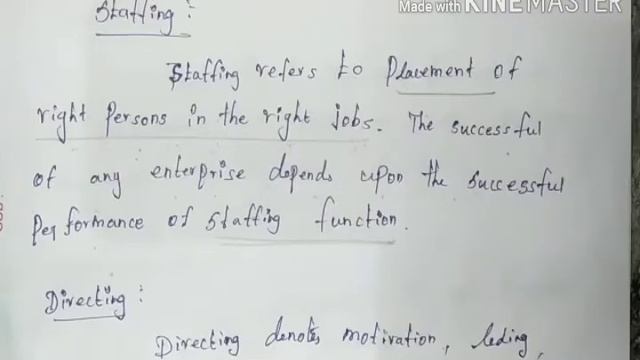 Made with KINEMASTER
Staffing :
Staffing refers to Placement of
right Persons in the right jobs. The successful
of any enterprise depends upon the successful
Performance of Staffing function.
Directing :
Directing denotes motivation, leding,